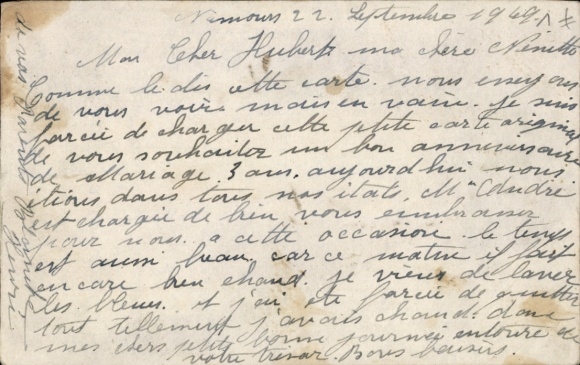 Nemours 22 Septembre 1949
Mon Cher Hubert ma chère Ninette
Comme le dis cette carte. nous essayons
de vous voire mais en vain. je suis
forcée de charger cette ptite carte original
de vous souhaiter un bon anniversaire
de Mariage. 3 ans. aujourdhui nous
étions dans tous nos états. Mme
est chargée de bien vous embrasser
pour nous. a cette occasion. le temps
est aussi beau car ce matin il fait
encore bien chaud. je viens de laver
les bleus. et j'ai été forcée de
tout tellement j'avais chaud. donc
mes chers ptits bonne journée entourée de
votre trésor. Bons baisers.
de vos